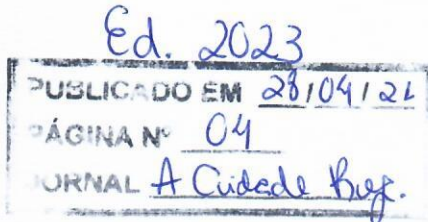 Ed. 2023
PUBLICADO EM 28/04/21
PÁGINA Nº 04
JORNAL A Cidade Reg.